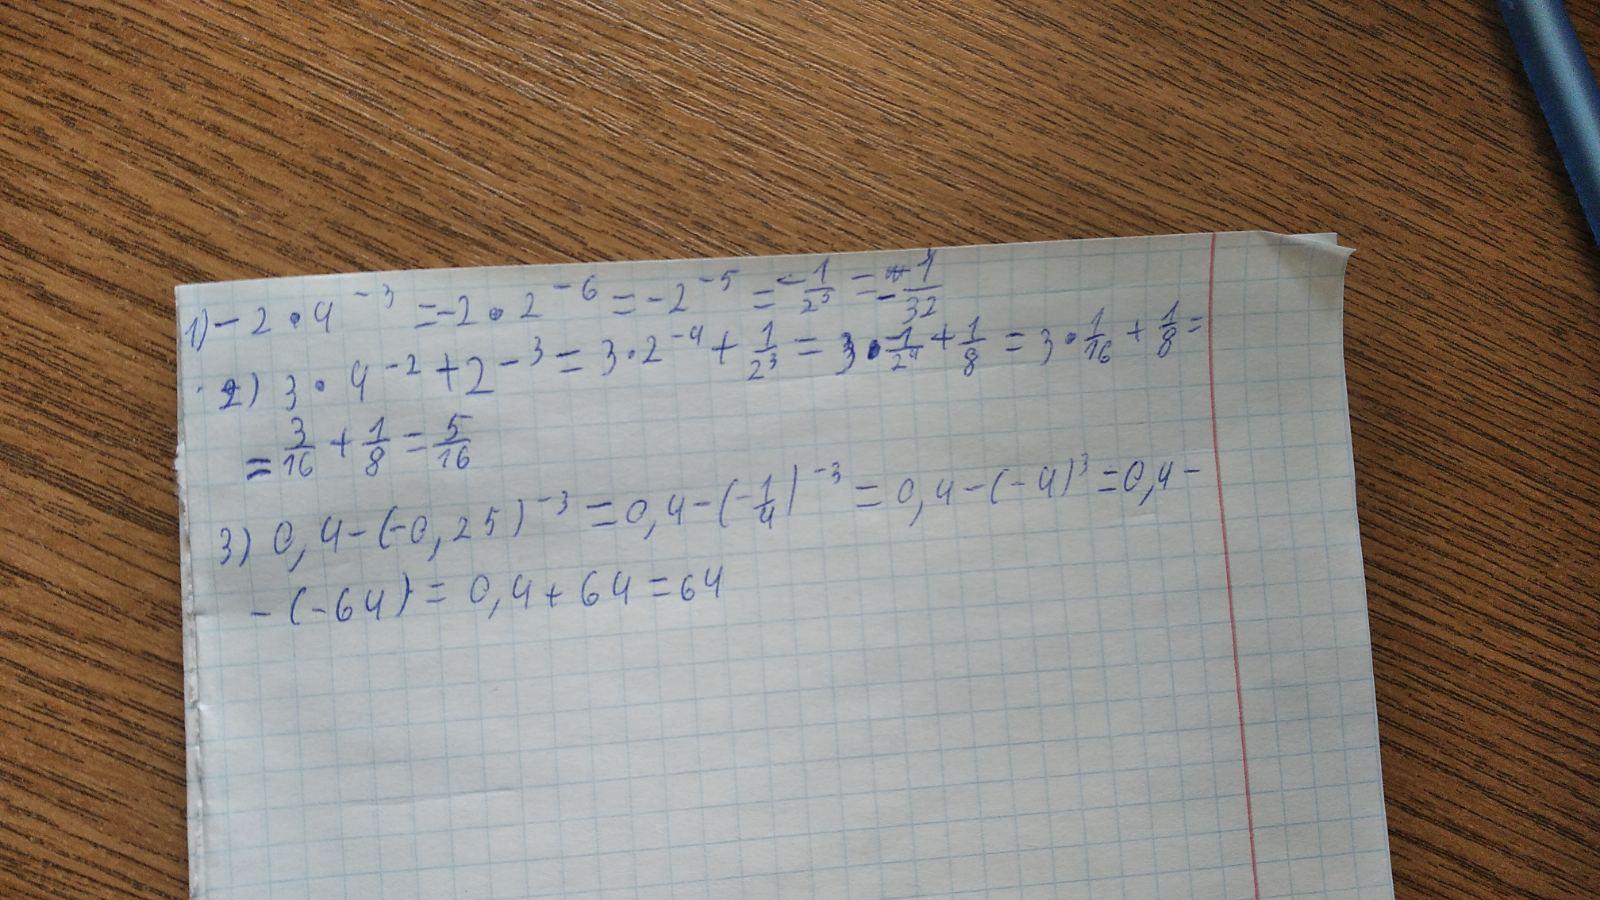 1) -2 • 4⁻³ = -2 • 2⁻⁶ = -2⁻⁵ = -1/2⁵ = -1/32
2) 3 • 4⁻² + 2⁻³ = 3 • 2⁻⁴ + 1/2³ = 3 • 1/2⁴ + 1/8 = 3 • 1/16 + 1/8 =
= 3/16 + 1/8 = 5/16
3) 0,4 - (-0,25)⁻³ = 0,4 - (-1/4)⁻³ = 0,4 - (-4)³ = 0,4 -
- (-64) = 0,4 + 64 = 64